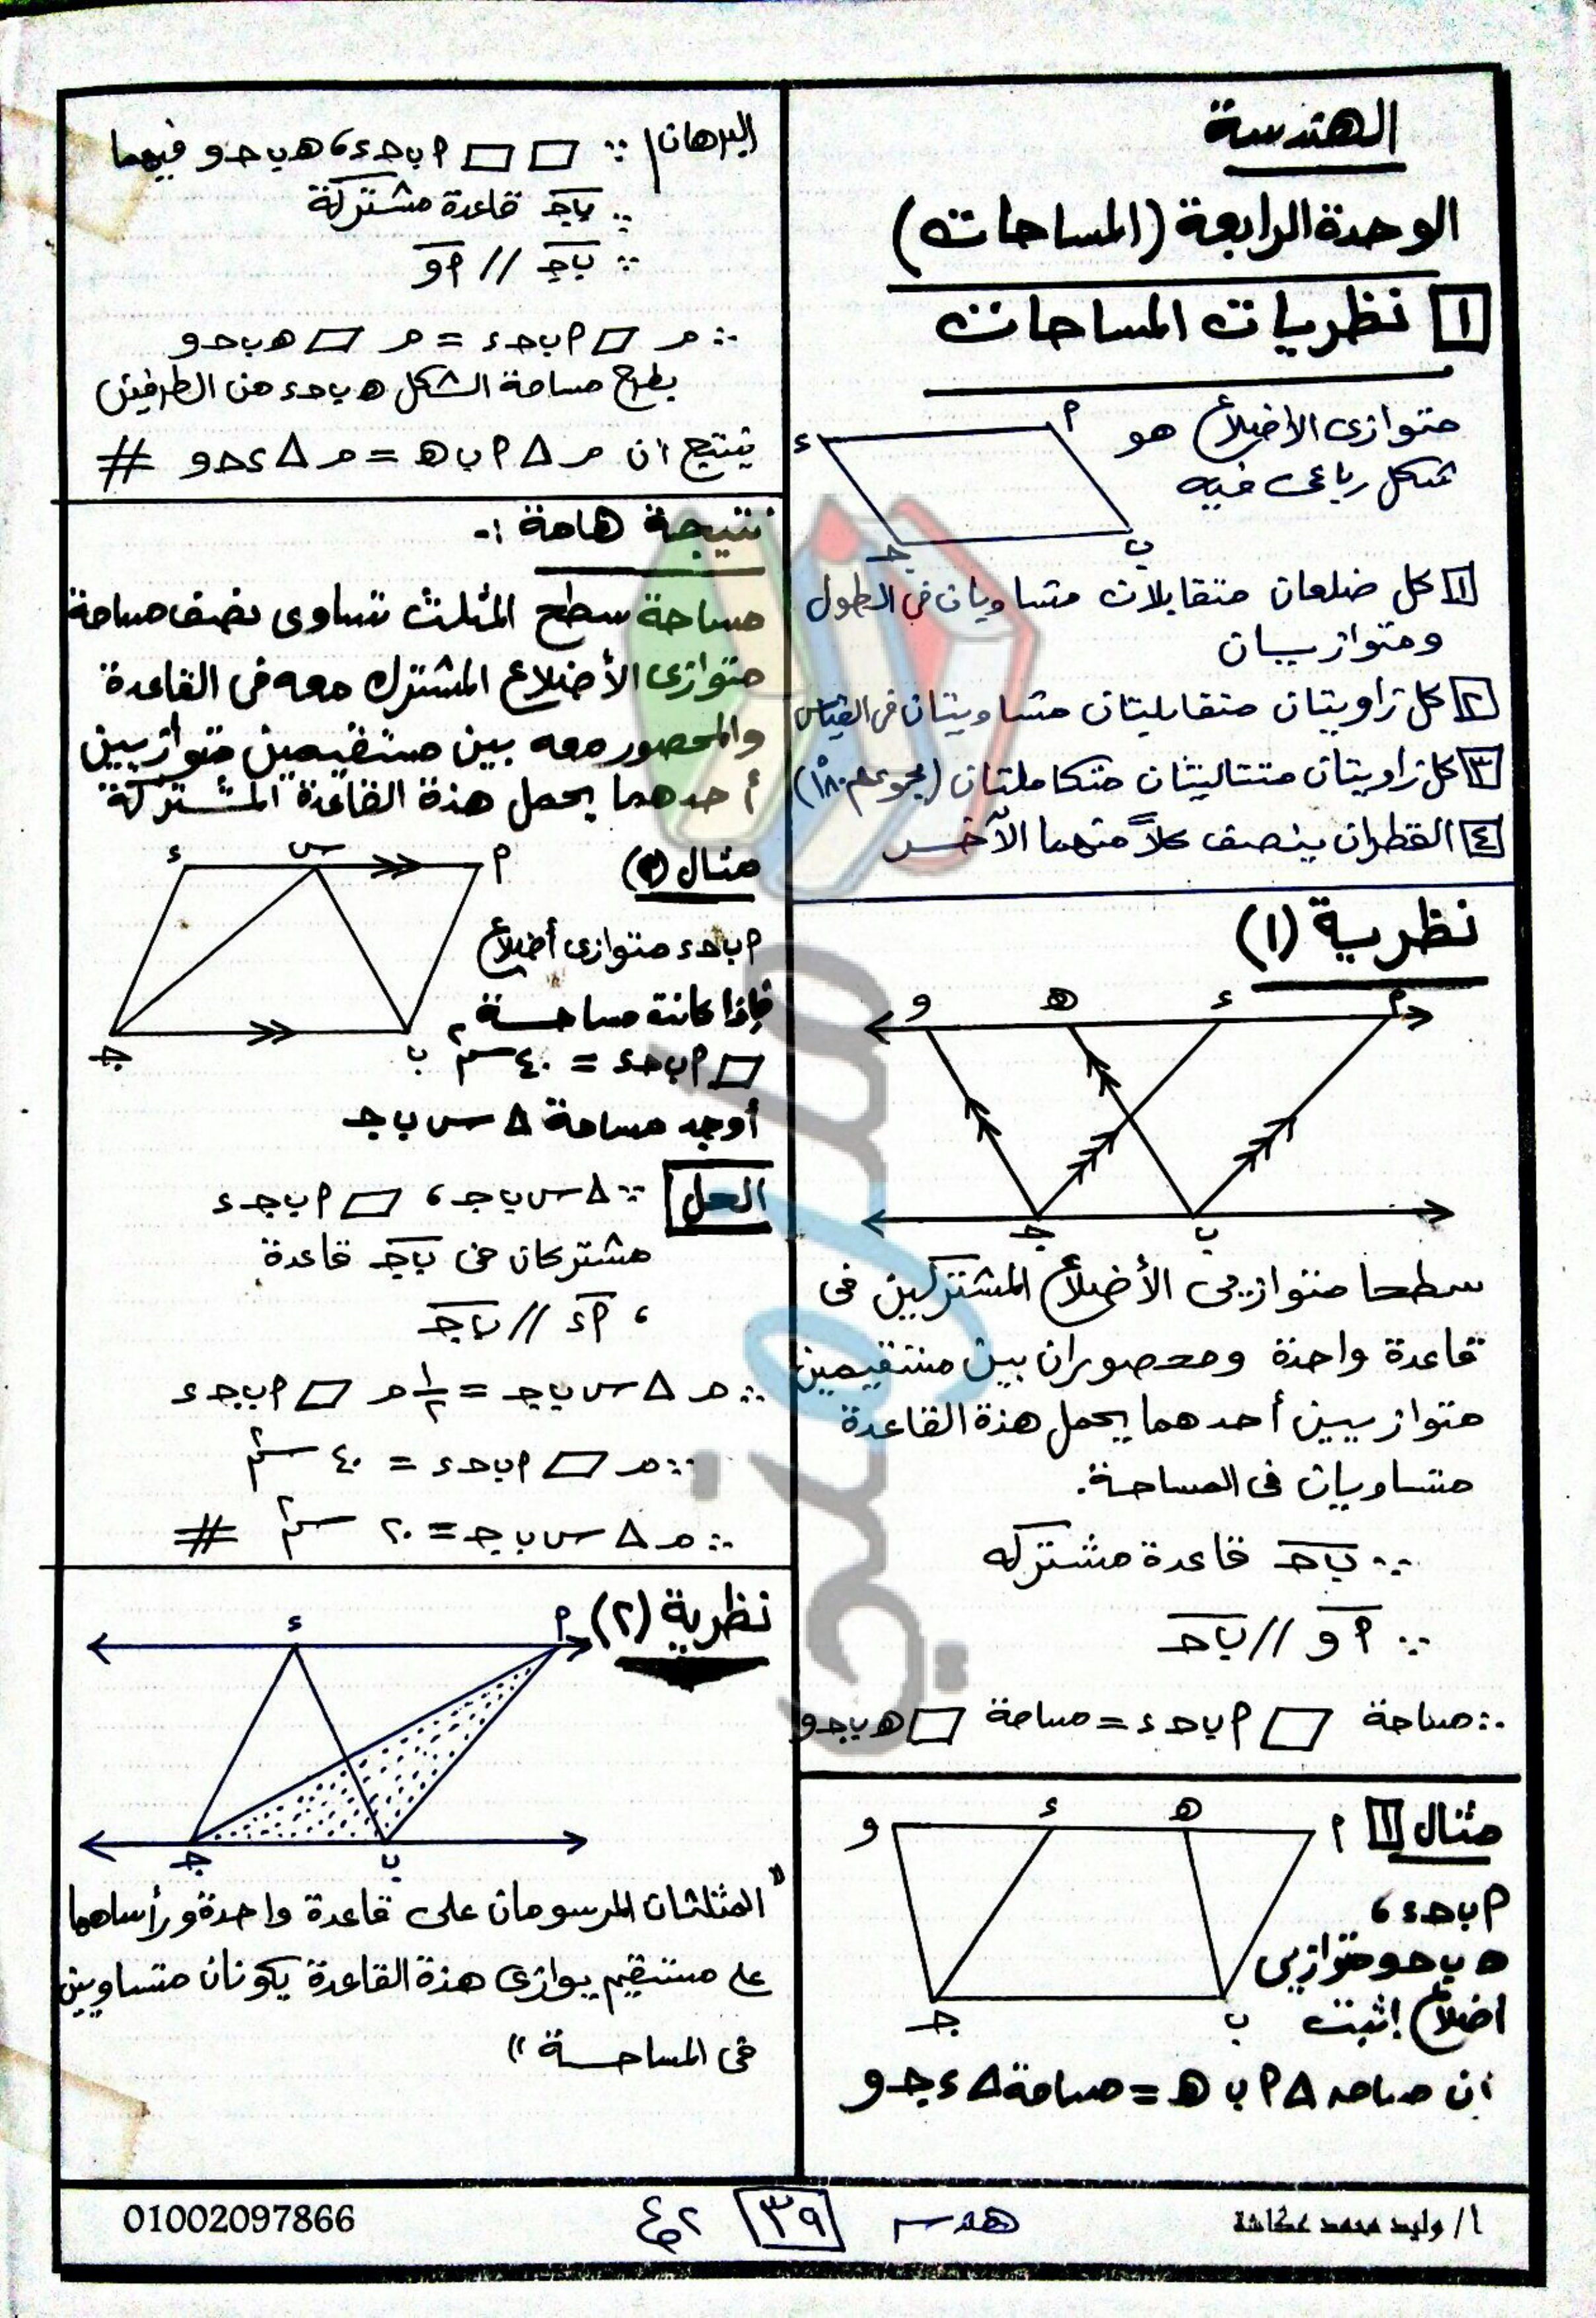 الهندسة
الوحدة الرابعة (المساحات)
١ نظريات المساحات
متوازى الاضلاع هو
شكل رباعى فيه
أ
ء
ب
جـ
١ كل ضلعان متقابلان متساويان فى الطول
ومتوازيان
٢ كل زاويتان متقابليتان متساويتان فى القياس
٣ كل زاويتان متتاليتان متكاملتان (مجموعهم ١٨٠°)
٤ القطران ينصف كلاً منهما الآخر
نظرية (١)
و هـ ء أ
جـ ب
سطحا متوازيى الأضلاع المشتركين فى
قاعدة واحدة ومحصوران بين مستقيمين
متوازيين أحدهما يحمل هذة القاعدة
متساويان فى المساحة.
∵ ب جـ قاعدة مشتركه
∵ أ و // ب جـ
∴ مساحة ▱ أ ب جـ ء = مساحة ▱ هـ ب جـ و
مثال ١
و ء هـ أ
جـ ب
أ ب جـ ء ،
هـ ب جـ و متوازيى
اضلاع إثبت
ان مساحه Δ أ ب هـ = مساحة Δ ء جـ و
البرهان ∵ ▱ ▱ أ ب جـ ء ، هـ ب جـ و فيهما
∵ ب جـ قاعدة مشتركة
∵ ب جـ // أ و
∴ م ▱ أ ب جـ ء = م ▱ هـ ب جـ و
بطرح مساحة الشكل هـ ب جـ ء من الطرفين
ينتج ان م Δ أ ب هـ = م Δ ء جـ و #
نتيجة هامة :-
مساحة سطح المثلث تساوى نصف مساحة
متوازى الأضلاع المشترك معه فى القاعدة
والمحصور معه بين مستقيمين متوازيين
أحدهما يحمل هذة القاعدة المشتركة
مثال (٢)
ء س أ
جـ ب
أ ب جـ ء متوازى أضلاع
فإذا كانت مساحة
▱ أ ب جـ ء = ٤٠ سم٢
أوجد مساحة Δ س ب جـ
الحل ∵ Δ س ب جـ ، ▱ أ ب جـ ء
مشتركان فى ب جـ قاعدة
، أ ء // ب جـ
∴ م Δ س ب جـ = ١/٢ م ▱ أ ب جـ ء
∵ م ▱ أ ب جـ ء = ٤٠ سم٢
∴ م Δ س ب جـ = ٢٠ سم٢ #
نظرية (٢)
ء أ
جـ ب
"المثلثان المرسومان على قاعدة واحدة ورأساهما
على مستقيم يوازى هذة القاعدة يكونان متساويين
فى المساحة"
أ/ وليد محمد عكاشة
هندسـ
٣٩
01002097866